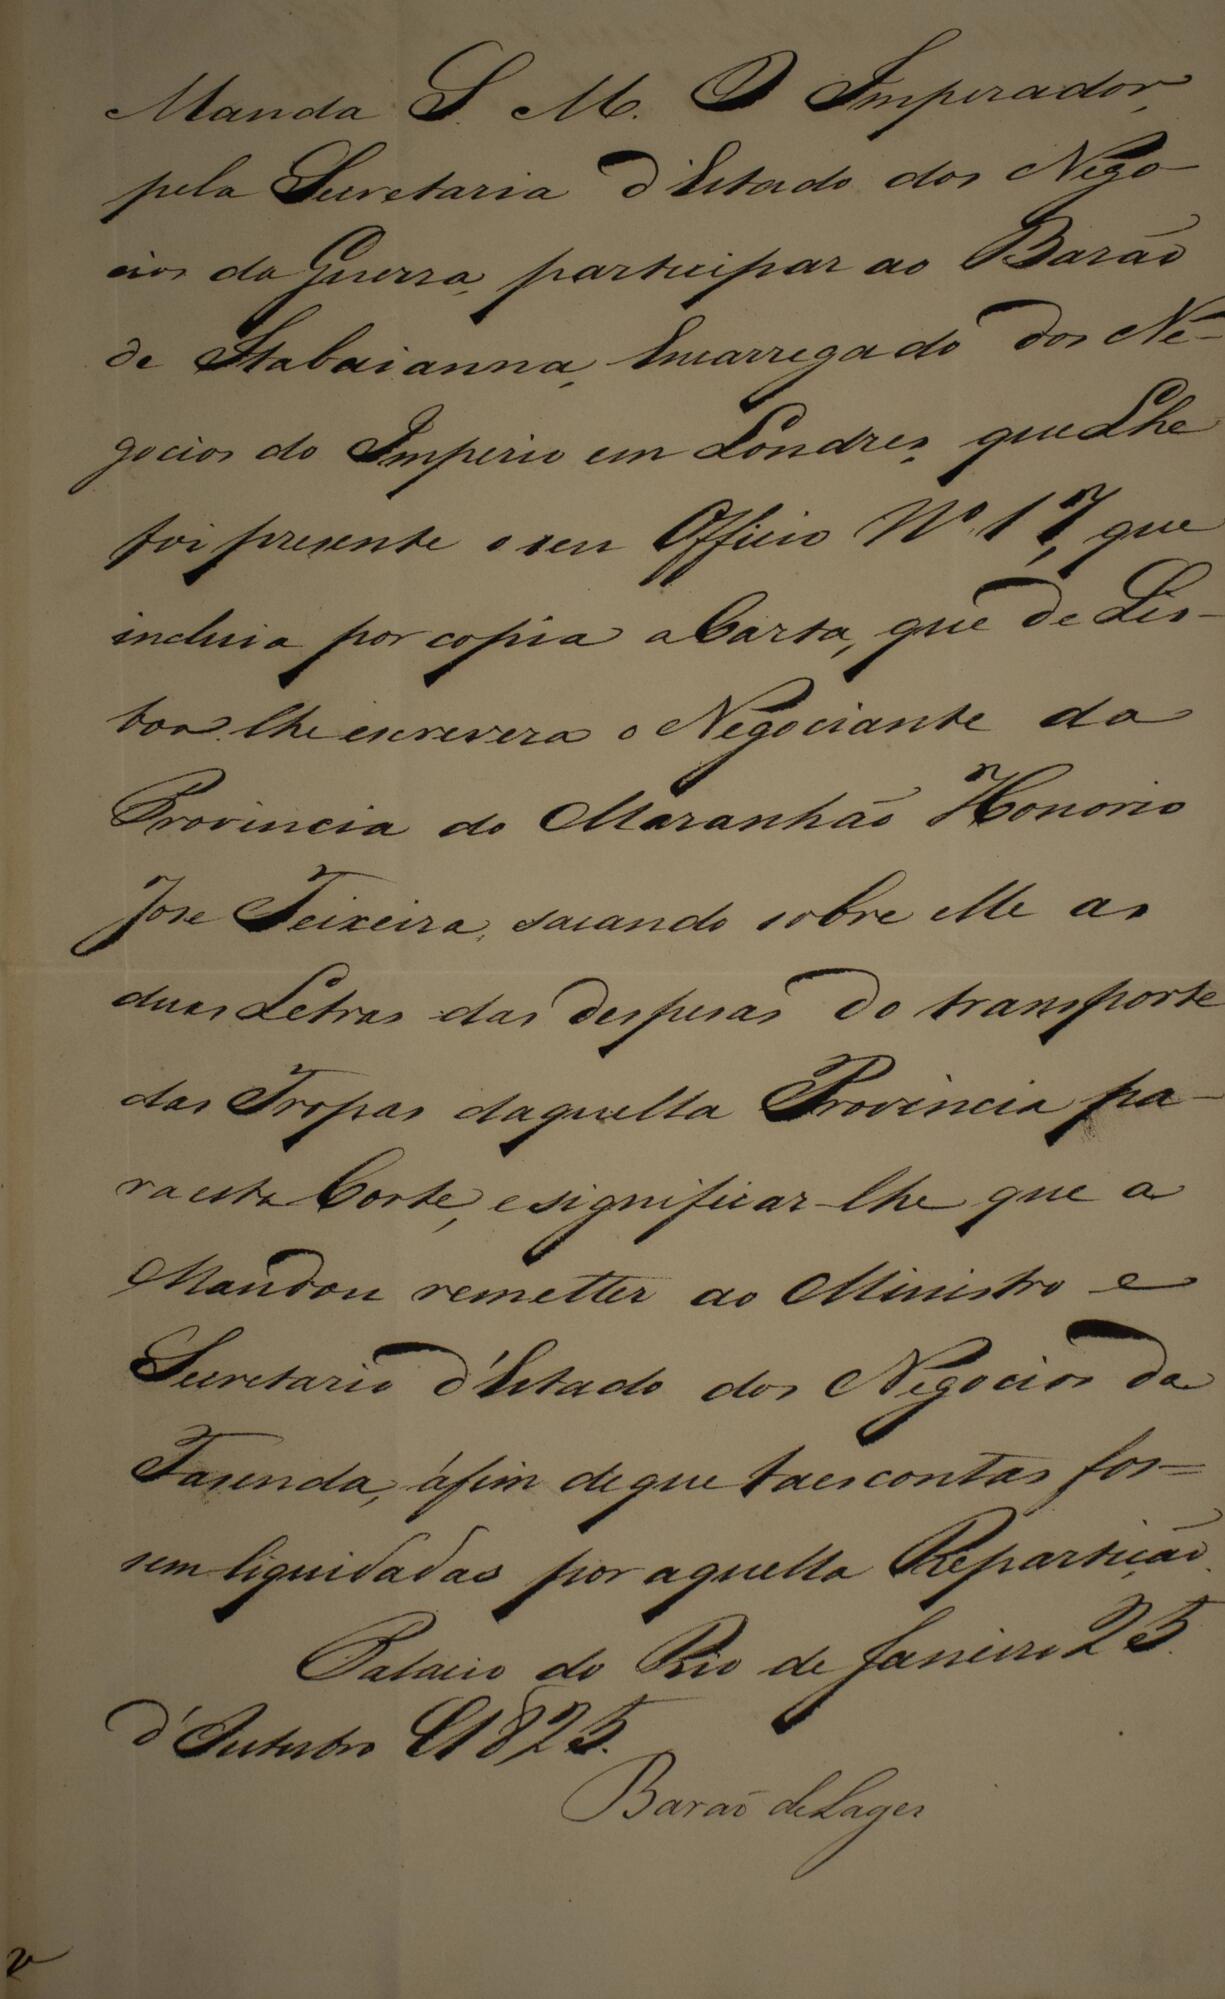 Manda S. M. O Imperador,
pela Secretaria d'Estado dos Nego-
cios da Guerra, participar ao Barão
de Itabaianna, Encarregado dos Ne-
gocios do Imperio em Londres, que Lhe
foi presente o seu Officio Nº 17, que
incluia por copia a Carta, que de Lis-
boa lhe escrevera o Negociante da
Provincia do Maranhão Honorio
Jose Teixeira, sacando sobre Elle as
duas Letras das despesas do transporte
das Tropas daquella Provincia pa-
ra esta Corte, e significar-lhe que a
Mandou remetter ao Ministro e
Secretario d'Estado dos Negocios da
Fasenda, áfim de que taes contas fos=
sem liquidadas por aquella Repartição.
Palacio do Rio de Janeiro 25
d'Outubro 1825.
Barão de Lages